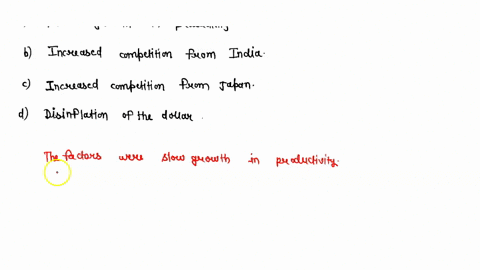 b) Increased competition from India.
c) Increased competition from Japan.
d) Disinflation of the dollar.
The factors were slow growth in productivity.